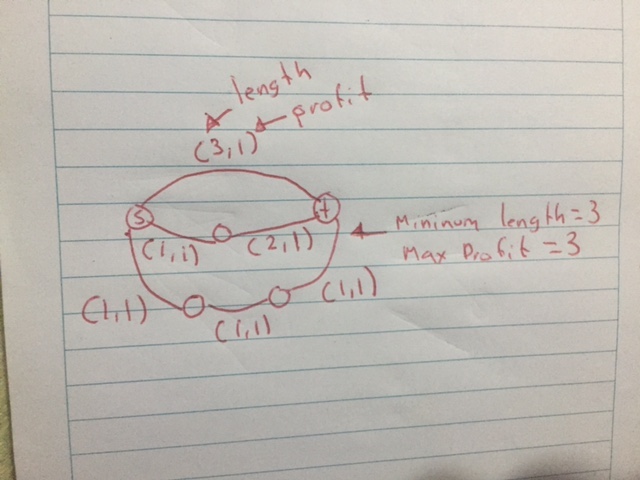 length
profit
(3,1)
s
t
(1,1)
(2,1)
Mininum length=3
Max Profit =3
(1,1)
(1,1)
(1,1)